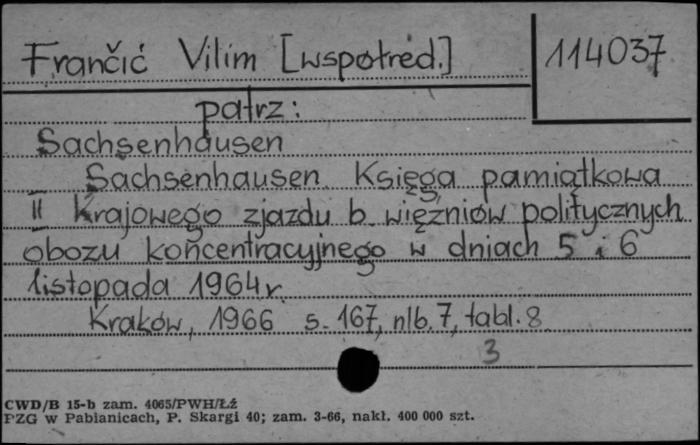 Frančić Vilim [współred.]
114037
patrz:
Sachsenhausen
Sachsenhausen. Księga pamiątkowa
II Krajowego zjazdu b. więźniów politycznych
obozu koncentracyjnego w dniach 5 i 6
listopada 1964 r.
Kraków, 1966 s. 167, nlb. 7, tabl. 8
3
CWD/B 15-b zam. 4065/PWH/Łź
PZG w Pabianicach, P. Skargi 40; zam. 3-66, nakł. 400 000 szt.